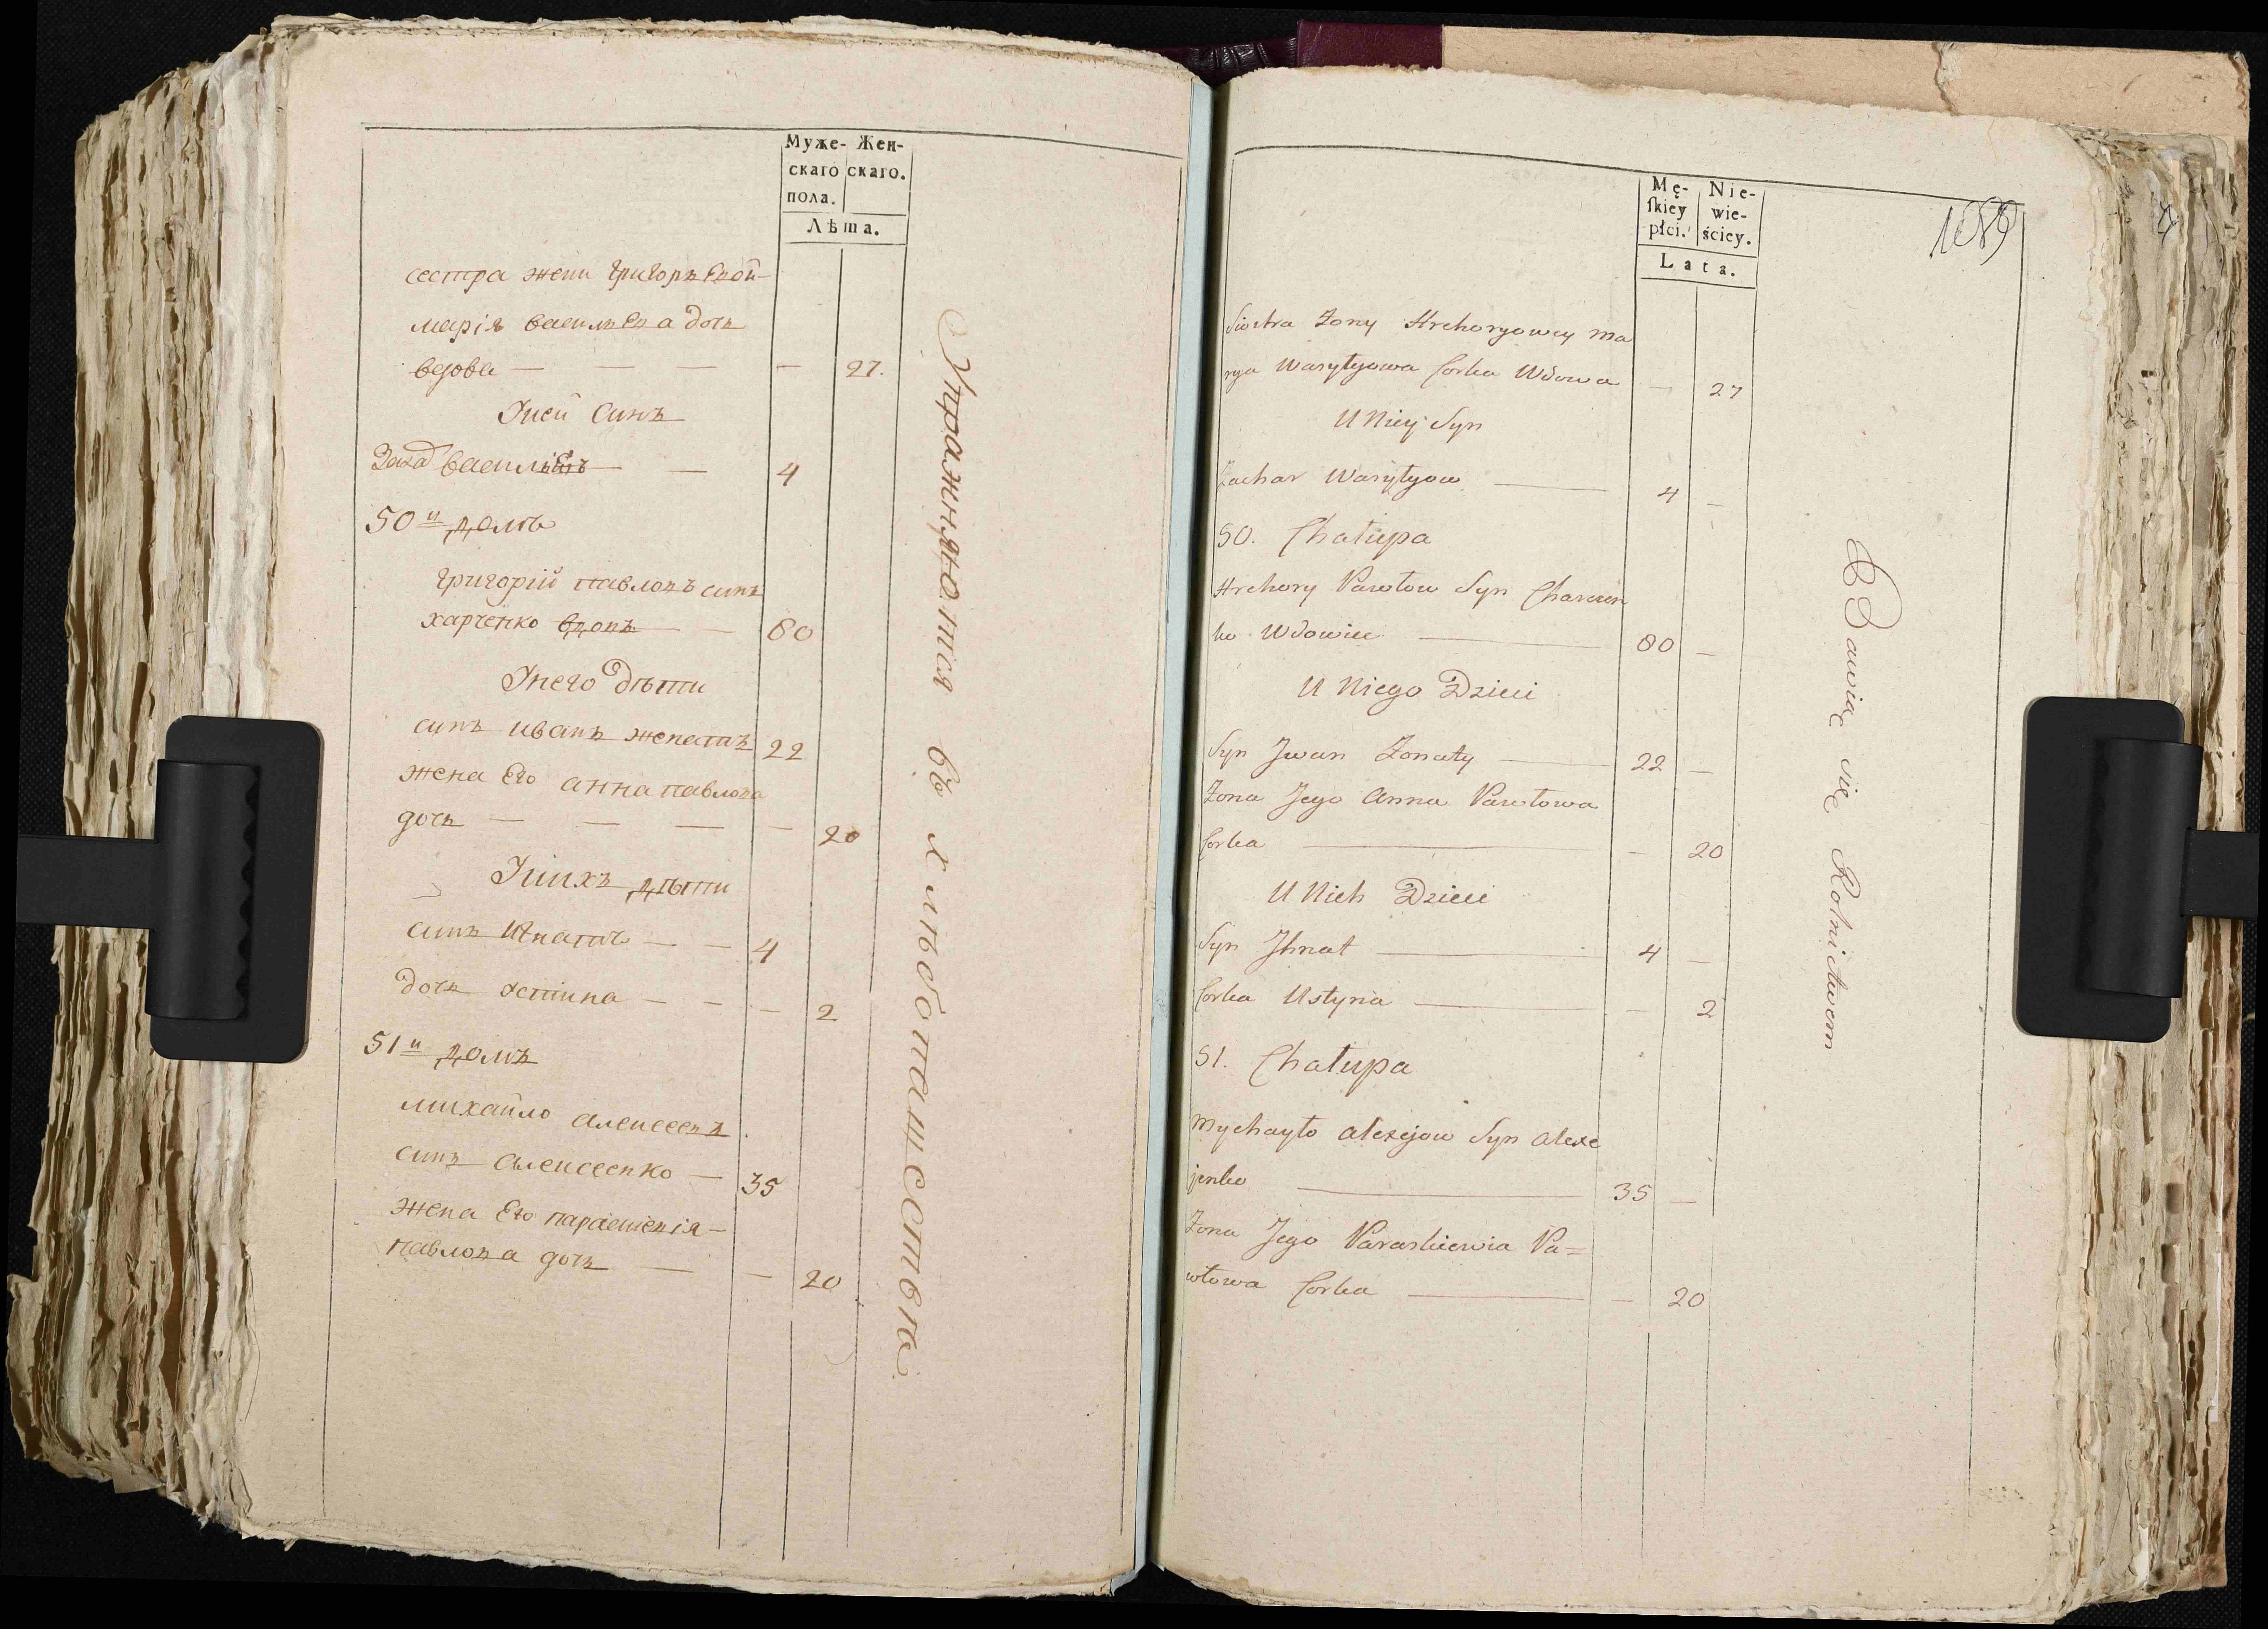 Муже- Жен-
скаго скаго.
пола.
Лѣта.
сестра жени григорѣвой
марія василѣва дочь
вдова — — — — 27.
Унеи Синъ
Захар василѣвъ — — 4
50й домъ
григорій павловъ синъ
харченко вдовъ — — 80
Унего дѣти
синъ иванъ женатъ 22
жена Его анна павлова
дочь — — — — 20
Унихъ дѣти
синъ игнатъ — — 4
дочь устина — — — 2
51й домъ
михайло алексеевъ
синъ алексеенко — 35
жена Его параскевія —
павлова дочь — — 20
Упражняются въ хлѣбопашествѣ
Mę- Nie-
ſkiey wie-
płci. ściey.
Lata.
1089
Siostra Żony Hrehoryowey Ma
rya Wasylyowa Corka Wdowa — 27
U Niey Syn
Zachar Wasylyow — 4 —
50. Chałupa
Hrehory Pawłow Syn Charczen
ko Wdowiec — 80 —
U Niego Dzieci
Syn Jwan Żonaty — 22 —
Żona Jego Anna Pawłowa
Corka — — 20
U Nich Dzieci
Syn Jhnat — 4 —
Corka Ustyna — — 2
51. Chałupa
Mychayło Alexejow Syn Alexe
jenko — 35 —
Żona Jego Paraskiewia Pa=
włowa Corka — — 20
Bawią się Rolnictwem